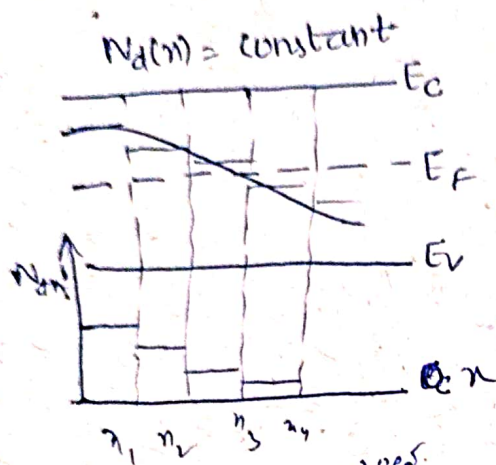 Nd(x) = constant
Ec
EF
Ev
x
x1 x2 x3 x4